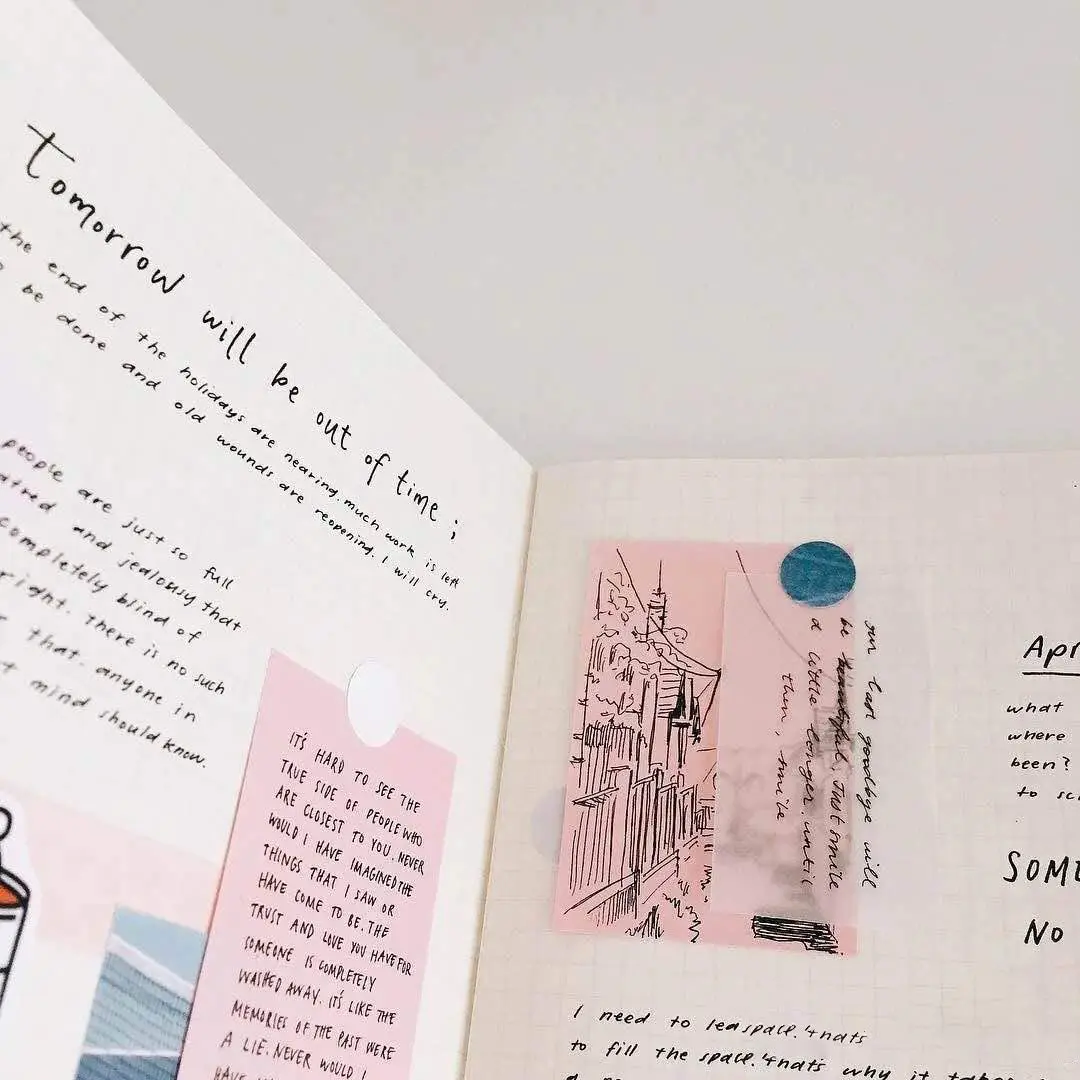 tomorrow will be out of time;
the end of the holidays are nearing. much work is left
be done and old wounds are reopening. I will cry.
people are just so full
and jealousy that
completely blind of
right. there is no such
that. anyone in
mind should know.
IT'S HARD TO SEE THE
TRUE SIDE OF PEOPLE WHO
ARE CLOSEST TO YOU. NEVER
WOULD I HAVE IMAGINED THE
THINGS THAT I SAW OR
HAVE COME TO BE. THE
TRUST AND LOVE YOU HAVE FOR
SOMEONE IS COMPLETELY
WASHED AWAY. IT'S LIKE THE
MEMORIES OF THE PAST WERE
A LIE. NEVER WOULD I
our last goodbye will
be just smile
a little longer. until
then, smile
what
where
been?
to
NO
I need to
to fill the space. why it